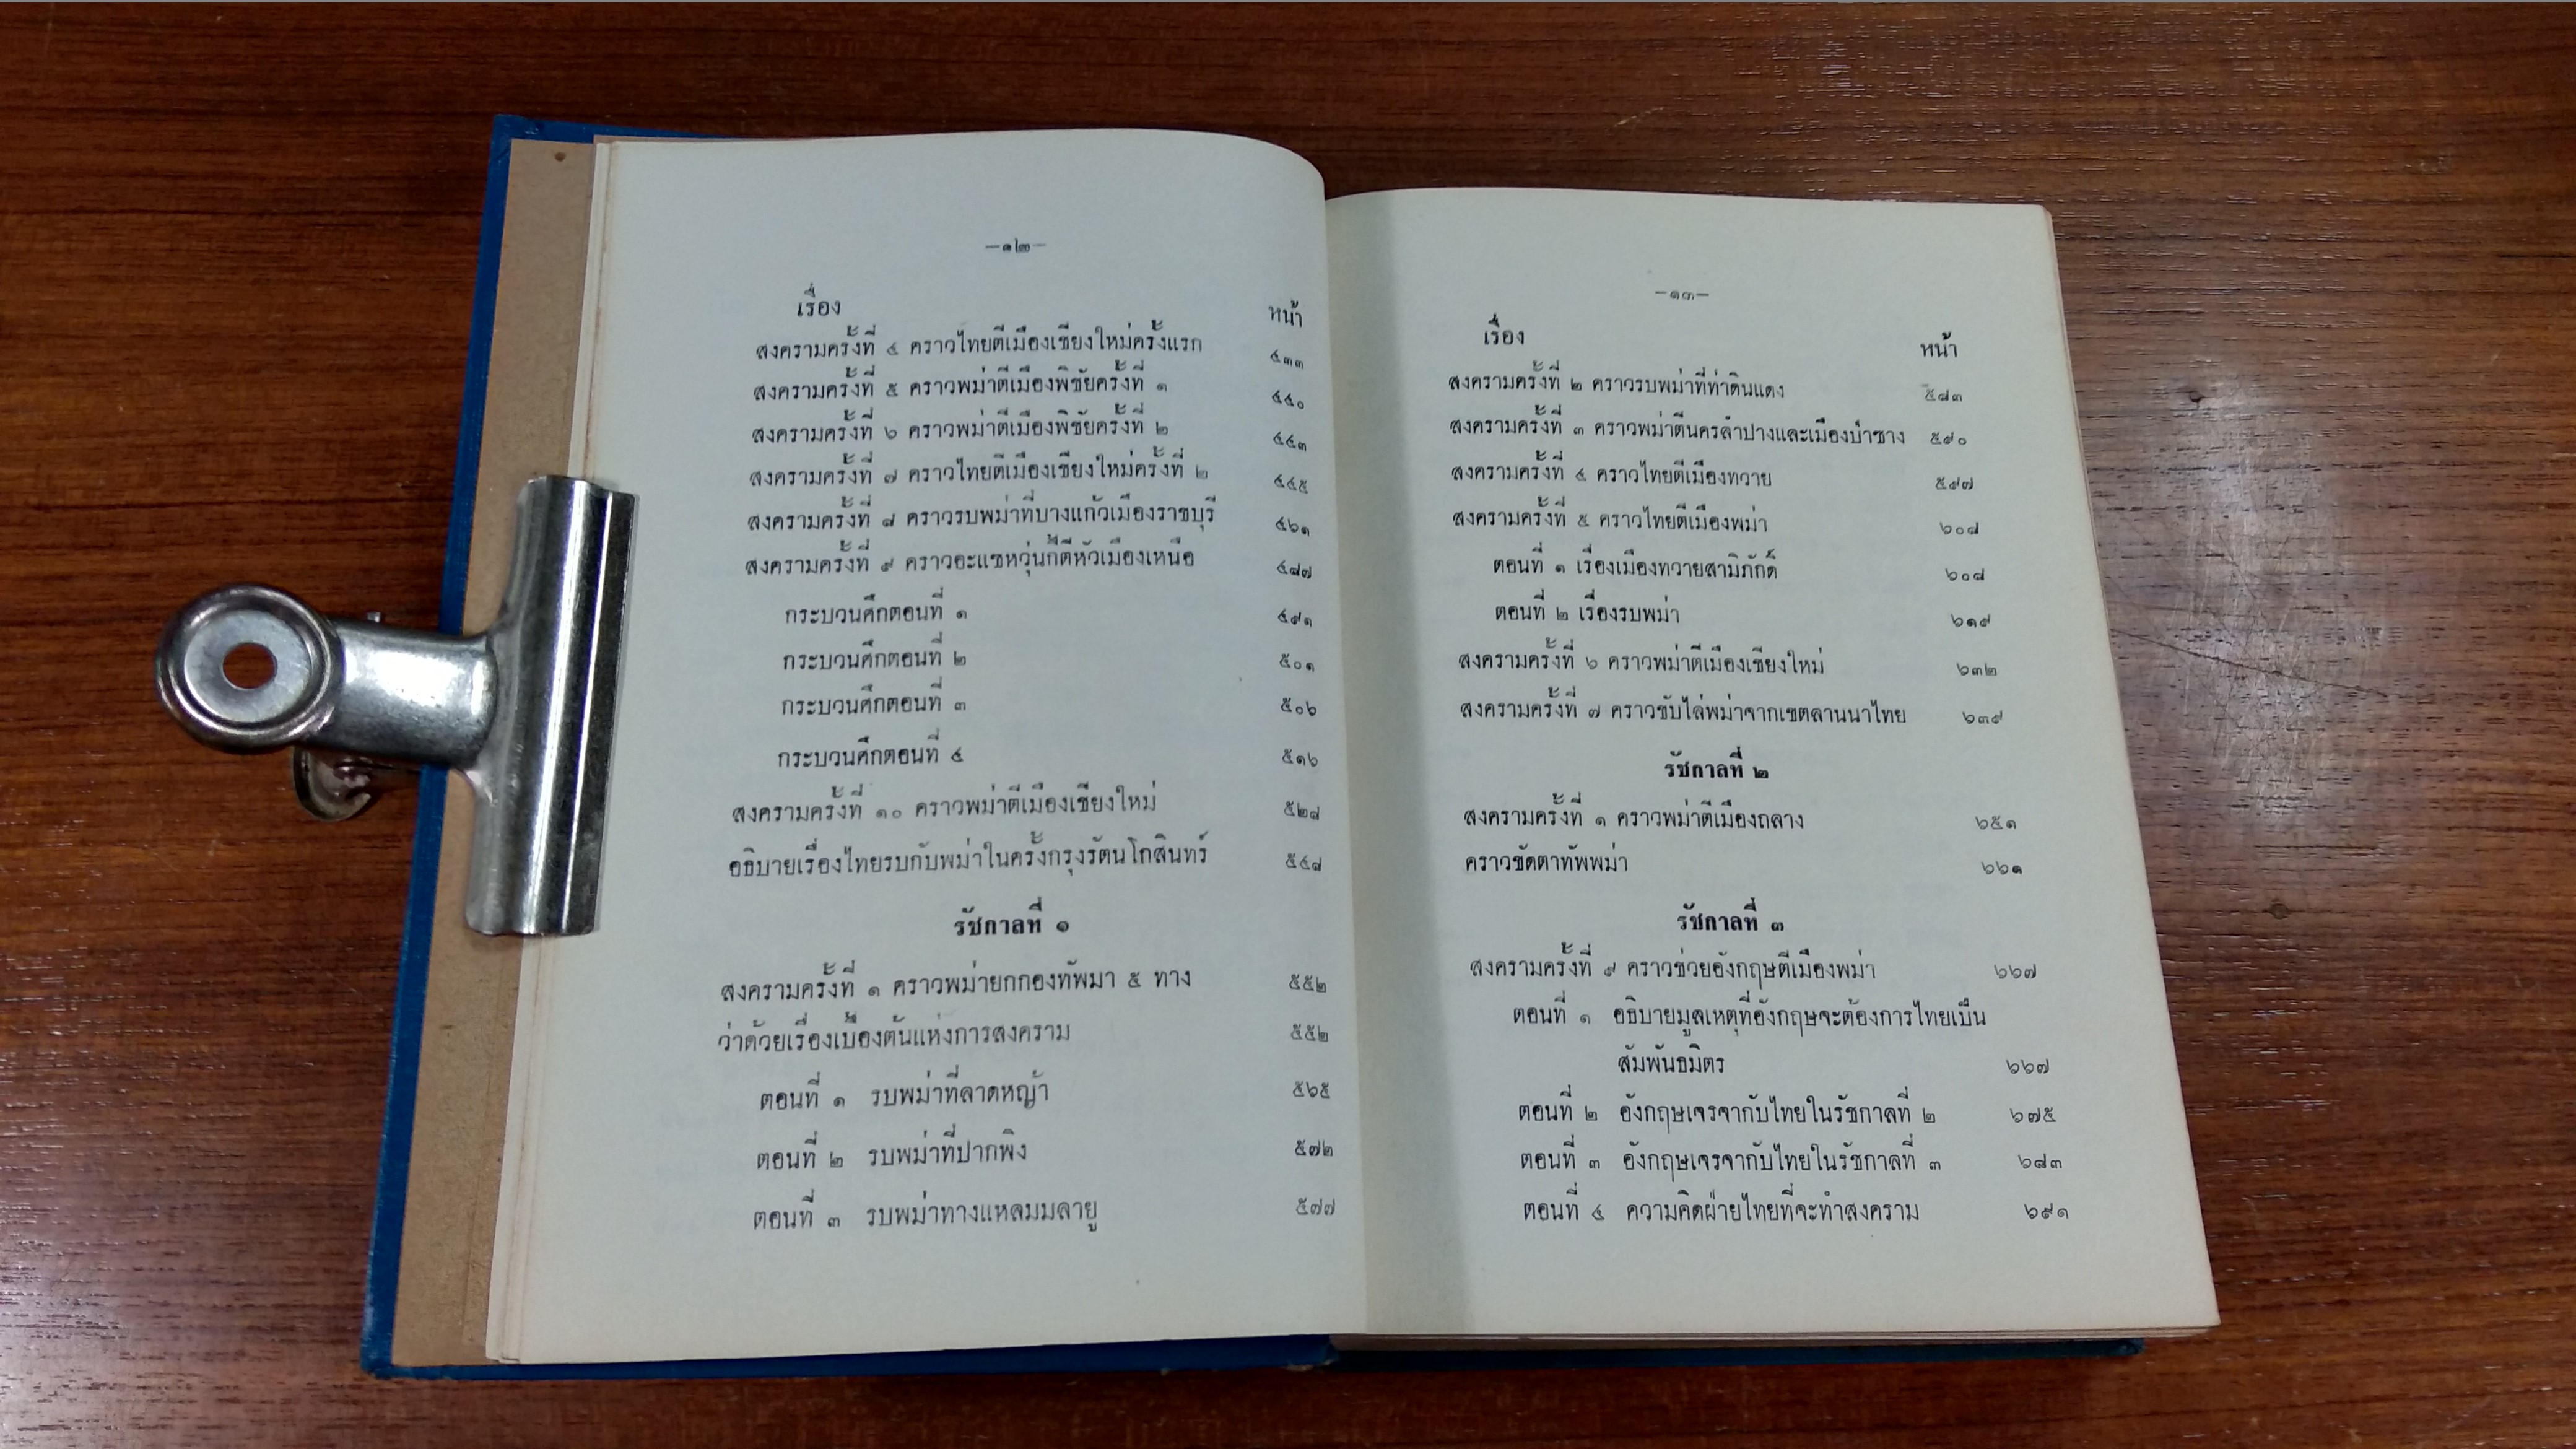 —๑๒—
เรื่อง หน้า
สงครามครั้งที่ ๔ คราวไทยตีเมืองเชียงใหม่ครั้งแรก ๔๓๓
สงครามครั้งที่ ๕ คราวพม่าตีเมืองพิชัยครั้งที่ ๑ ๔๔๐
สงครามครั้งที่ ๖ คราวพม่าตีเมืองพิชัยครั้งที่ ๒ ๔๔๓
สงครามครั้งที่ ๗ คราวไทยตีเมืองเชียงใหม่ครั้งที่ ๒ ๔๔๕
สงครามครั้งที่ ๘ คราวรบพม่าที่บางแก้วเมืองราชบุรี ๔๖๑
สงครามครั้งที่ ๙ คราวอะแซหวุ่นกี้ตีหัวเมืองเหนือ ๔๘๗
กระบวนศึกตอนที่ ๑ ๔๙๑
กระบวนศึกตอนที่ ๒ ๕๐๑
กระบวนศึกตอนที่ ๓ ๕๐๖
กระบวนศึกตอนที่ ๔ ๕๑๖
สงครามครั้งที่ ๑๐ คราวพม่าตีเมืองเชียงใหม่ ๕๒๘
อธิบายเรื่องไทยรบกับพม่าในครั้งกรุงรัตนโกสินทร์ ๕๔๘
รัชกาลที่ ๑
สงครามครั้งที่ ๑ คราวพม่ายกกองทัพมา ๕ ทาง ๕๕๒
ว่าด้วยเรื่องเบื้องต้นแห่งการสงคราม ๕๕๒
ตอนที่ ๑ รบพม่าที่ลาดหญ้า ๕๖๕
ตอนที่ ๒ รบพม่าที่ปากพิง ๕๗๒
ตอนที่ ๓ รบพม่าทางแหลมมลายู ๕๗๗
—๑๓—
เรื่อง หน้า
สงครามครั้งที่ ๒ คราวรบพม่าที่ท่าดินแดง ๕๘๓
สงครามครั้งที่ ๓ คราวพม่าตีนครลำปางและเมืองป่าซาง ๕๙๐
สงครามครั้งที่ ๔ คราวไทยตีเมืองทวาย ๕๙๗
สงครามครั้งที่ ๕ คราวไทยตีเมืองพม่า ๖๐๘
ตอนที่ ๑ เรื่องเมืองทวายสามิภักดิ์ ๖๐๘
ตอนที่ ๒ เรื่องรบพม่า ๖๑๙
สงครามครั้งที่ ๖ คราวพม่าตีเมืองเชียงใหม่ ๖๓๒
สงครามครั้งที่ ๗ คราวขับไล่พม่าจากเขตลานนาไทย ๖๓๙
รัชกาลที่ ๒
สงครามครั้งที่ ๑ คราวพม่าตีเมืองถลาง ๖๕๑
คราวขัดตาทัพพม่า ๖๖๑
รัชกาลที่ ๓
สงครามครั้งที่ ๙ คราวช่วยอังกฤษตีเมืองพม่า ๖๖๗
ตอนที่ ๑ อธิบายมูลเหตุที่อังกฤษจะต้องการไทยเป็น
สัมพันธมิตร ๖๖๗
ตอนที่ ๒ อังกฤษเจรจากับไทยในรัชกาลที่ ๒ ๖๗๕
ตอนที่ ๓ อังกฤษเจรจากับไทยในรัชกาลที่ ๓ ๖๘๓
ตอนที่ ๔ ความคิดฝ่ายไทยที่จะทำสงคราม ๖๙๑